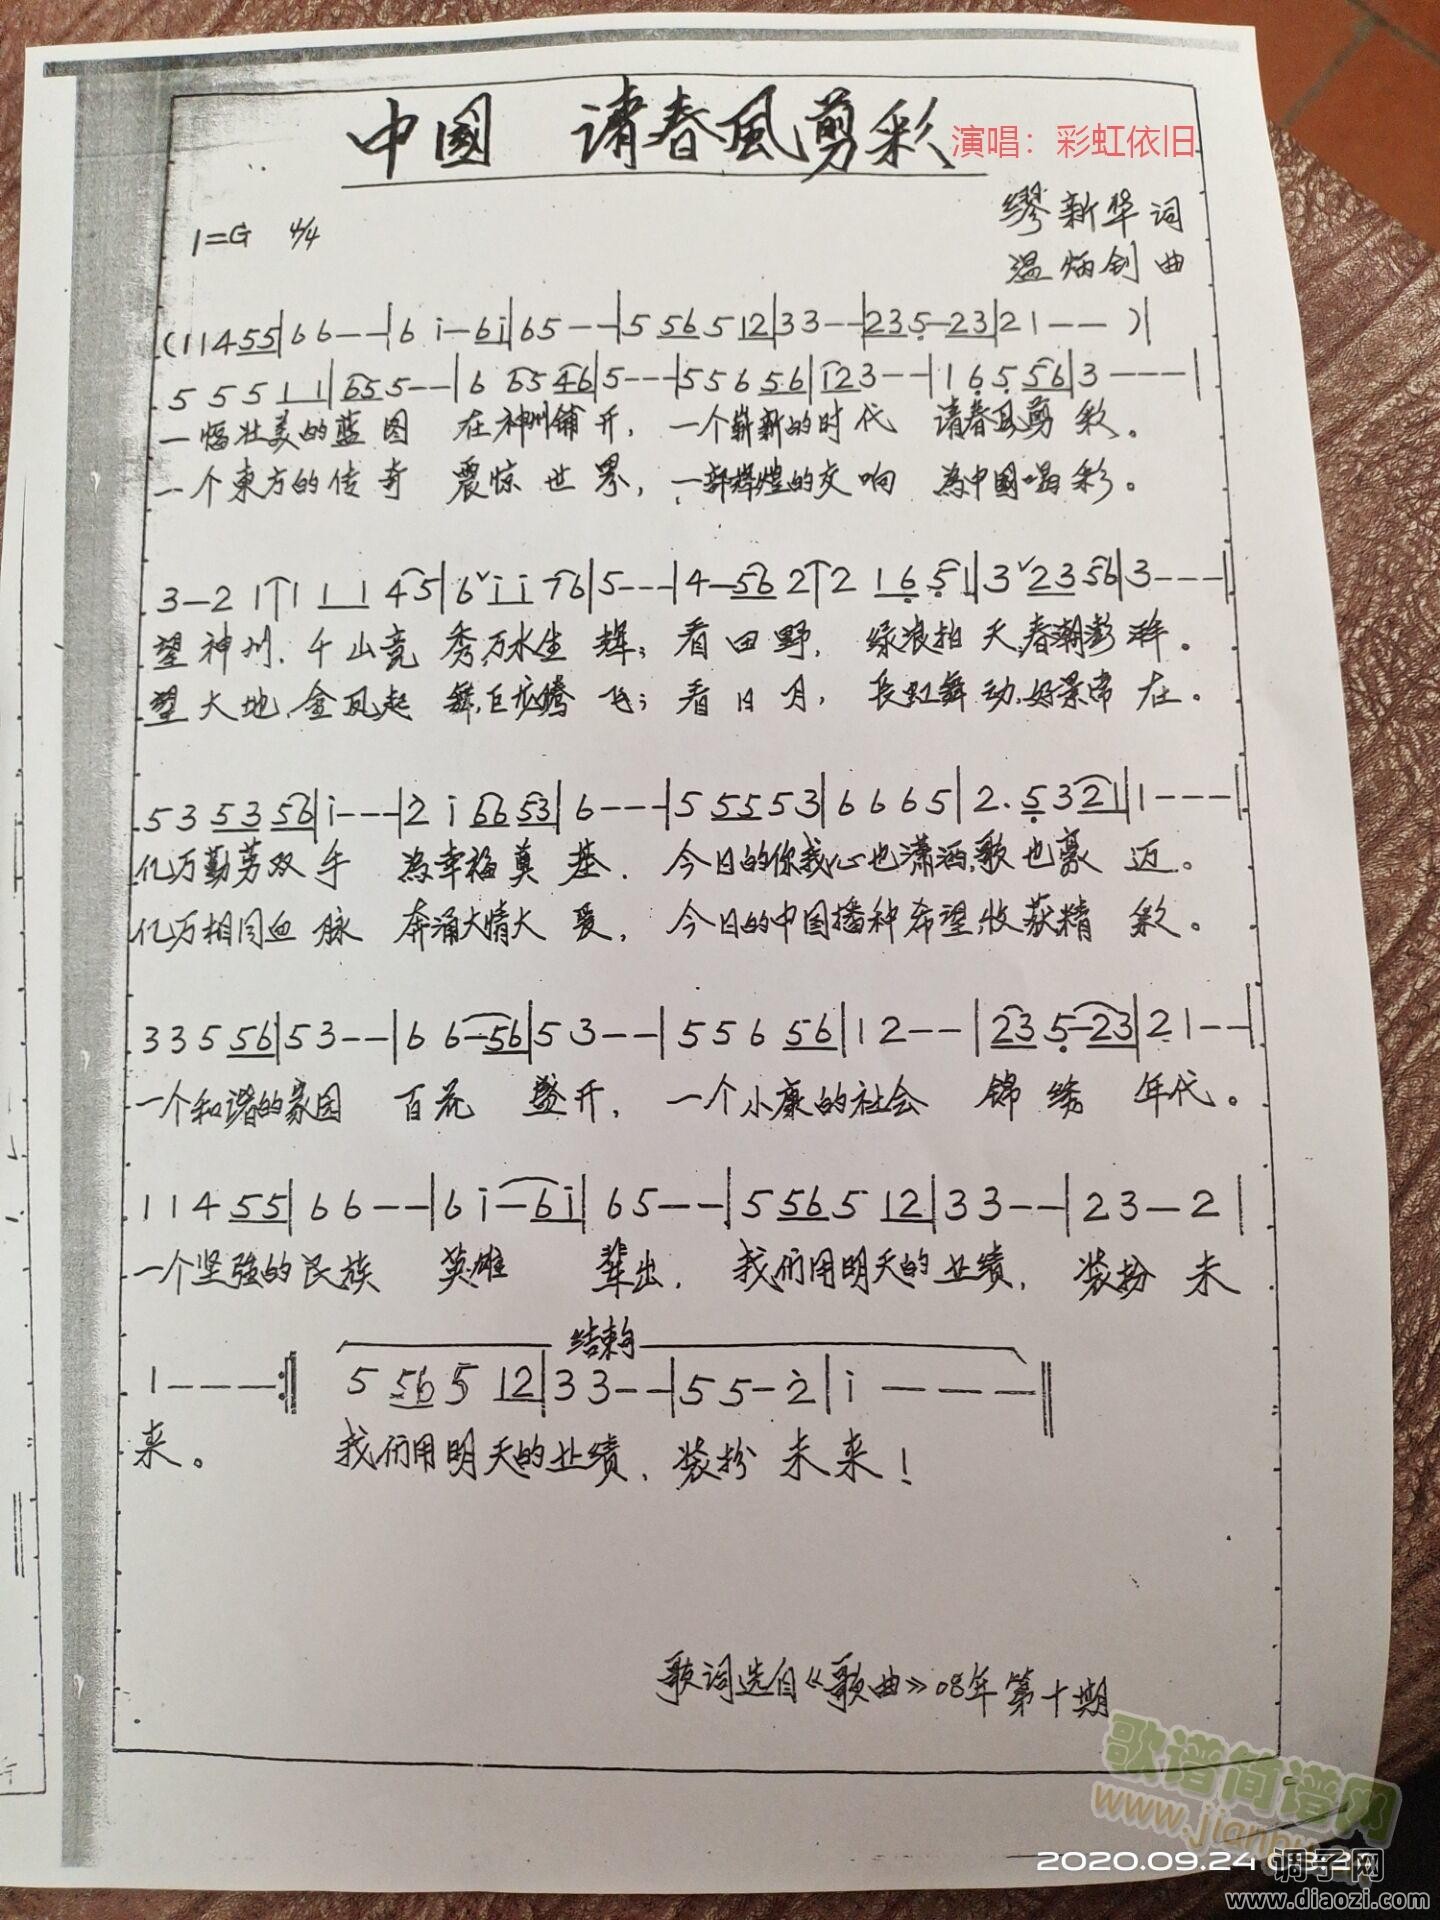 中國 请春風剪彩 演唱：彩虹依旧
缪新华 词
1=G 4/4
温炳钊 曲
(1 1 4 55|6 6 - -|6 i - 6i|6 5 - -|5 56 5 12|3 3 - -|23 5 - 23|2 1 - - )|
5 5 5 1 1|65 5 - -|6 65 46|5 - - -|5 5 6 56|12 3 - -|1 6 5 56|3 - - -|
一幅壮美的蓝图 在神州铺开， 一个崭新的时代 请春风剪彩。
一个東方的传奇 震惊世界， 一部辉煌的交响 為中國喝彩。
3 - 2 1↑1 1 1 45|6 ˇ i i 76|5 - - -|4 - 56 2↑2 1 6 5 1|3 ˇ 23 56|3 - - -|
望神州，千山竞秀，万水生辉； 看田野，绿浪拍天，春潮澎湃。
望大地，金凤起舞，巨龙腾飞； 看日月，长虹舞动，好景常在。
5 3 53 56|i - - -|2 i 66 53|6 - - -|5 55 5 3|6 6 6 5|2. 5 3 21|1 - - -|
亿万勤劳双手 為幸福奠基， 今日的你我心也潇洒，歌也豪迈。
亿万相同血脉 奔涌大情大爱， 今日的中国播种希望，收获精彩。
3 3 5 56|5 3 - -|6 6 - 56|5 3 - -|5 5 6 56|1 2 - -|23 5 - 23|2 1 - -|
一个和谐的家园 百花盛开， 一个小康的社会 锦绣年代。
1 1 4 55|6 6 - -|6 i - 6i|6 5 - -|5 56 5 12|3 3 - -|2 3 - 2|
一个坚强的民族 英雄辈出， 我们用明天的业绩， 装扮未
结束句
1 - - - :‖ 5 56 5 12|3 3 - -|5 5 - 2|i - - - -‖
来。 我们用明天的业绩，装扮未来！
歌词选自《歌曲》08年第十期
歌谱简谱网
www.jianpu
2020.09.24
调子网
www.diaozi.com